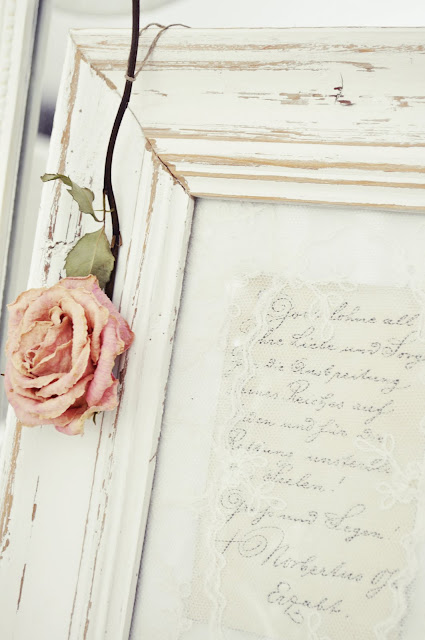 Gott lohne all
Ihre Liebe und Sorg
die Ausbreitung
eines Reiches auf
den und für
Rettung unsterbl
Seelen!
Gruß und Segen!
+ Norbertus
Erzabt.